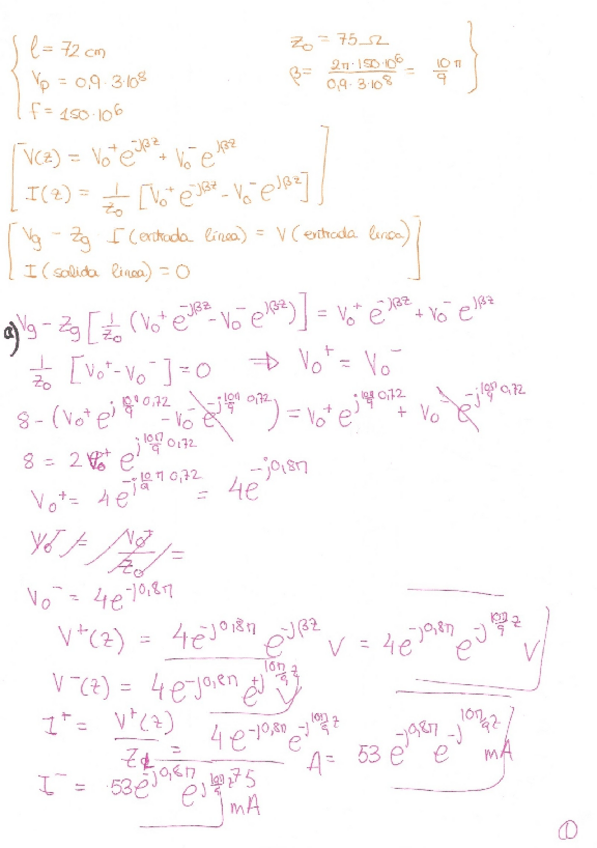 l = 72 cm
Z₀ = 75 Ω
Vp = 0,9 · 3·10⁸
β = 2π·150·10⁶ / 0,9·3·10⁸ = 10π/9
f = 150·10⁶
V(z) = V₀⁺ e^(-jβz) + V₀⁻ e^(jβz)
I(z) = 1/Z₀ [V₀⁺ e^(-jβz) - V₀⁻ e^(jβz)]
Vg - Zg I (entrada linea) = V (entrada linea)
I (salida linea) = 0
a) Vg - Zg [1/Z₀ (V₀⁺ e^(-jβz) - V₀⁻ e^(jβz))] = V₀⁺ e^(-jβz) + V₀⁻ e^(jβz)
1/Z₀ [V₀⁺ - V₀⁻] = 0 ⇒ V₀⁺ = V₀⁻
8 - (V₀⁺ e^(j 10π/9 0,72) - V₀⁻ e^(-j 10π/9 0,72)) = V₀⁺ e^(j 10π/9 0,72) + V₀⁻ e^(-j 10π/9 0,72)
8 = 2 V₀⁺ e^(j 10π/9 0,72)
V₀⁺ = 4e^(-j 10π/9 0,72) = 4e^(-j0,8π)
V₀⁻ = 4e^(-j0,8π)
V⁺(z) = 4e^(-j0,8π) e^(-jβz) V = 4e^(-j0,8π) e^(-j 10π/9 z) V
V⁻(z) = 4e^(-j0,8π) e^(+j 10π/9 z) V
I⁺ = V⁺(z)/Z = 4e^(-j0,8π) e^(-j 10π/9 z) / 75 A = 53 e^(-j0,8π) e^(-j 10π/9 z) mA
I⁻ = 53e^(-j0,8π) e^(j 10π/9 z) mA
1